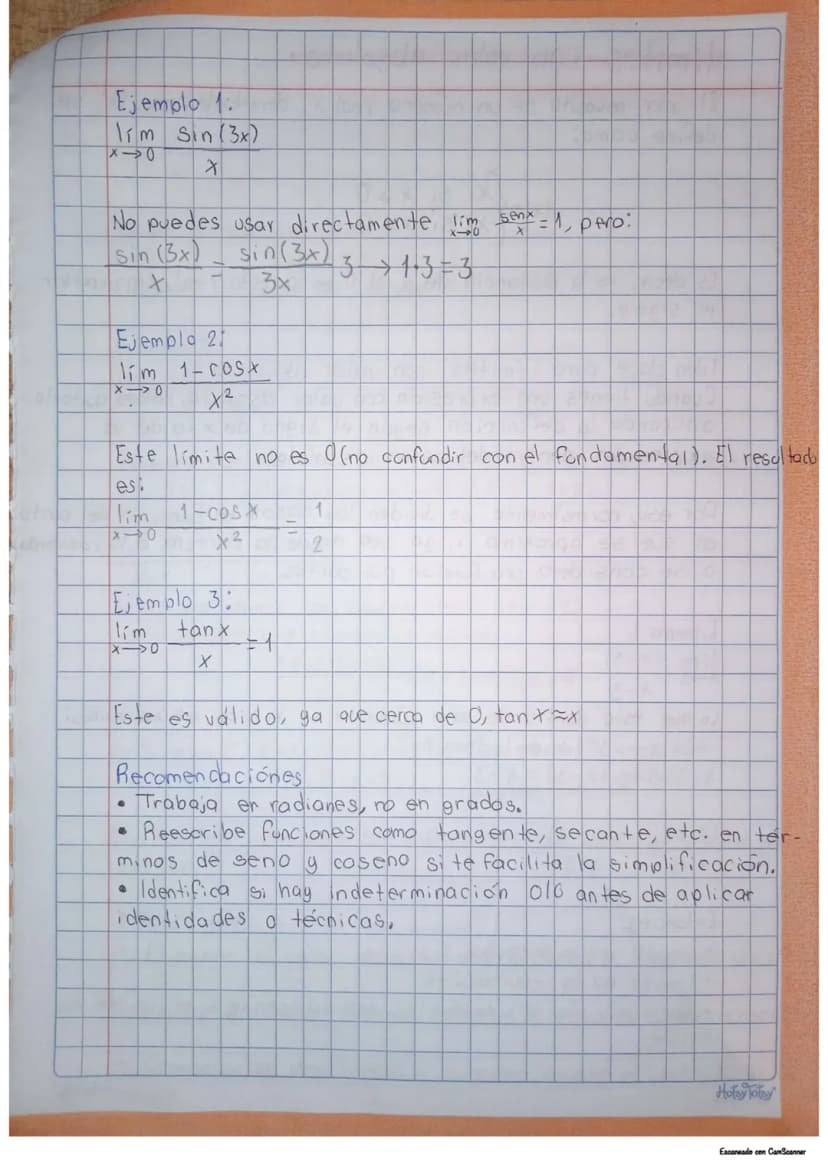 Ejemplo 1:
lím sin(3x)
x→0 x
No puedes usar directamente lím x→0 senx/x = 1, pero:
sin(3x)/x = sin(3x)/3x 3 → 1·3 = 3
Ejemplo 2:
lím 1-cosx
x→0 x²
Este límite no es 0 (no confundir con el fundamental). El resultado
es:
lím 1-cosx = 1
x→0 x² 2
Ejemplo 3:
lím tanx = 1
x→0 x
Este es válido, ya que cerca de 0, tan x≈x
Recomendaciónes
• Trabaja en radianes, no en grados.
• Reescribe funciones como tangente, secante, etc. en tér-
minos de seno y coseno si te facilita la simplificación.
• Identifica si hay indeterminación 0/0 antes de aplicar
identidades o técnicas.
HotsyTotsy
Escaneado con CamScanner